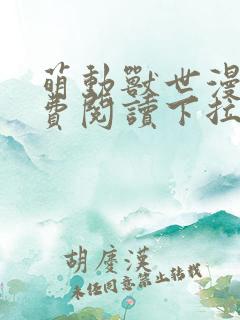 萌動獸世漫
費閱讀下拉
胡慶漢
未经同意禁止转载